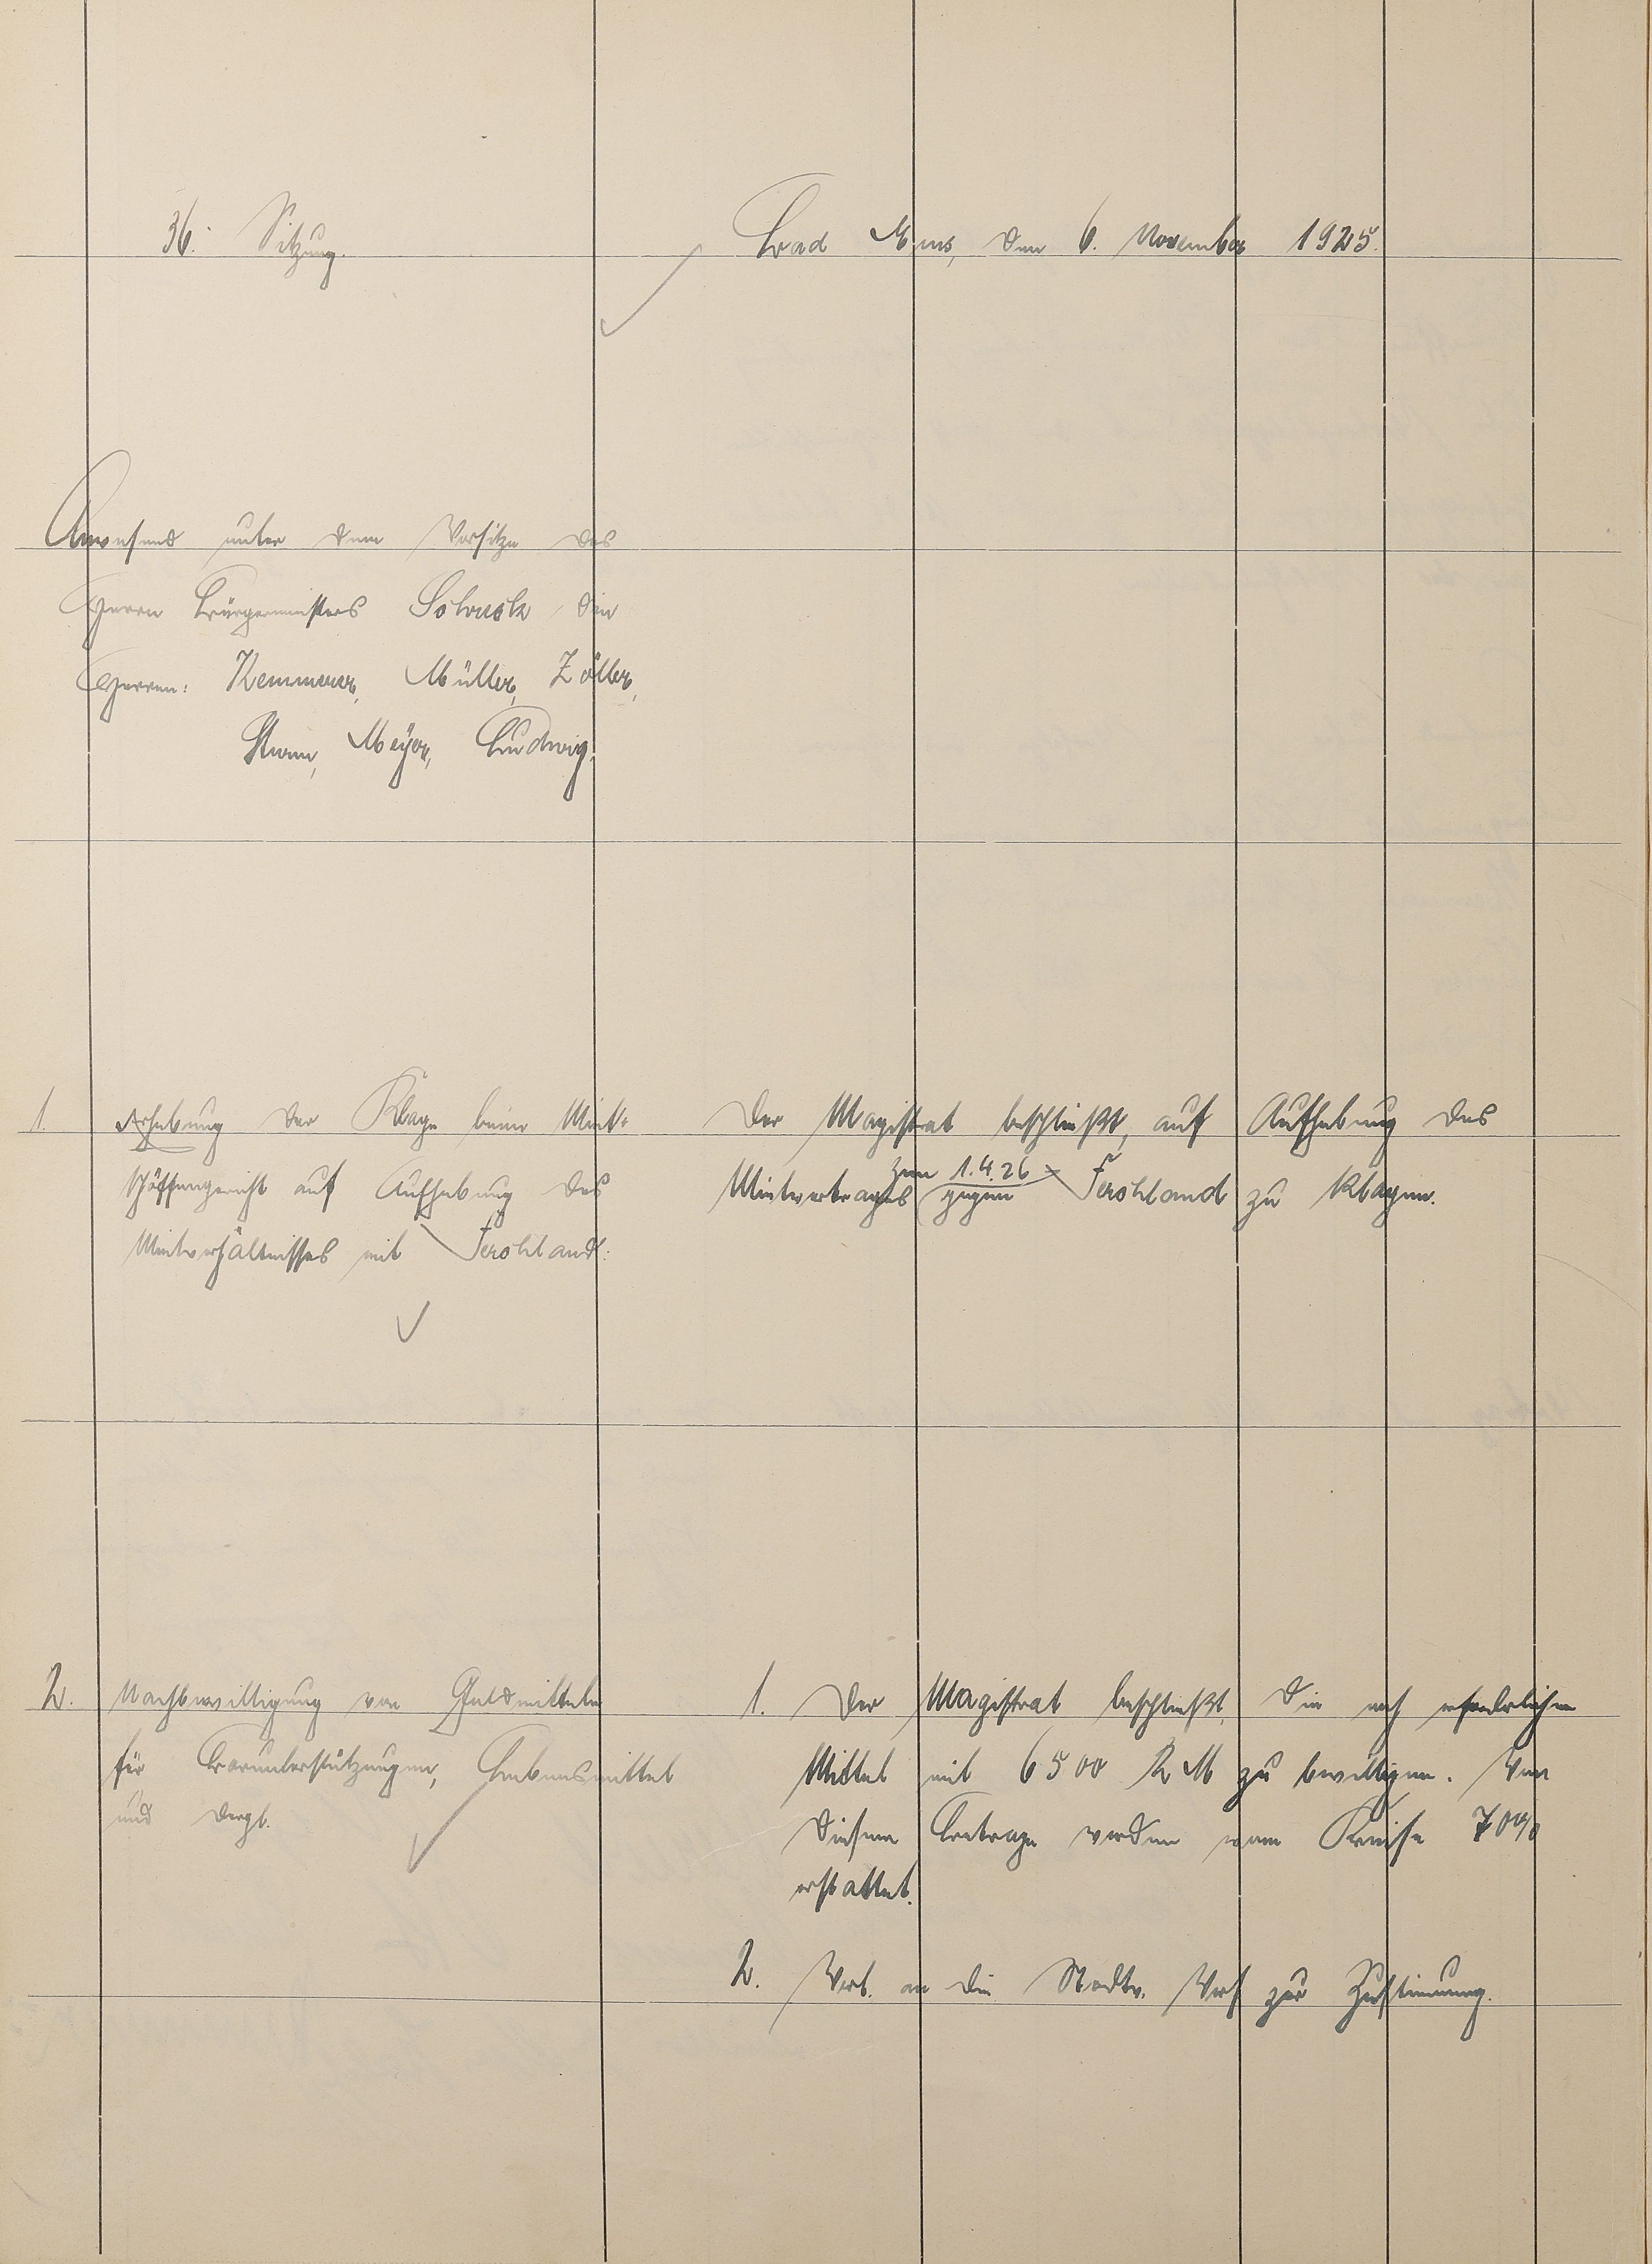 36. Sitzung.
Bad Ems, den 6. November 1925.
Anwesend unter dem Vorsitze des
Herrn Bürgermeisters die
Herren: Kemmerer, Müller, Zöller,
Sturm, Meyer, Ludwig.
1. Erhebung der Klage beim Miet-
schöffengericht auf Aufhebung des
Mietverhältnisses mit Ferohland.
Der Magistrat beschließt, auf Aufhebung des
zum 1.4.26
Mietvertrages gegen Ferohland zu klagen.
2. Nachbewilligung von Geldmitteln
für Barunterstützungen, Lebensmittel
und dergl.
1. Der Magistrat beschließt, die noch erforderlichen
Mittel mit 6500 RM zu bewilligen. Von
diesem Betrage werden vom Kreise 70%
erstattet.
2. an die Stadtv. Vers zur Zustimmung.